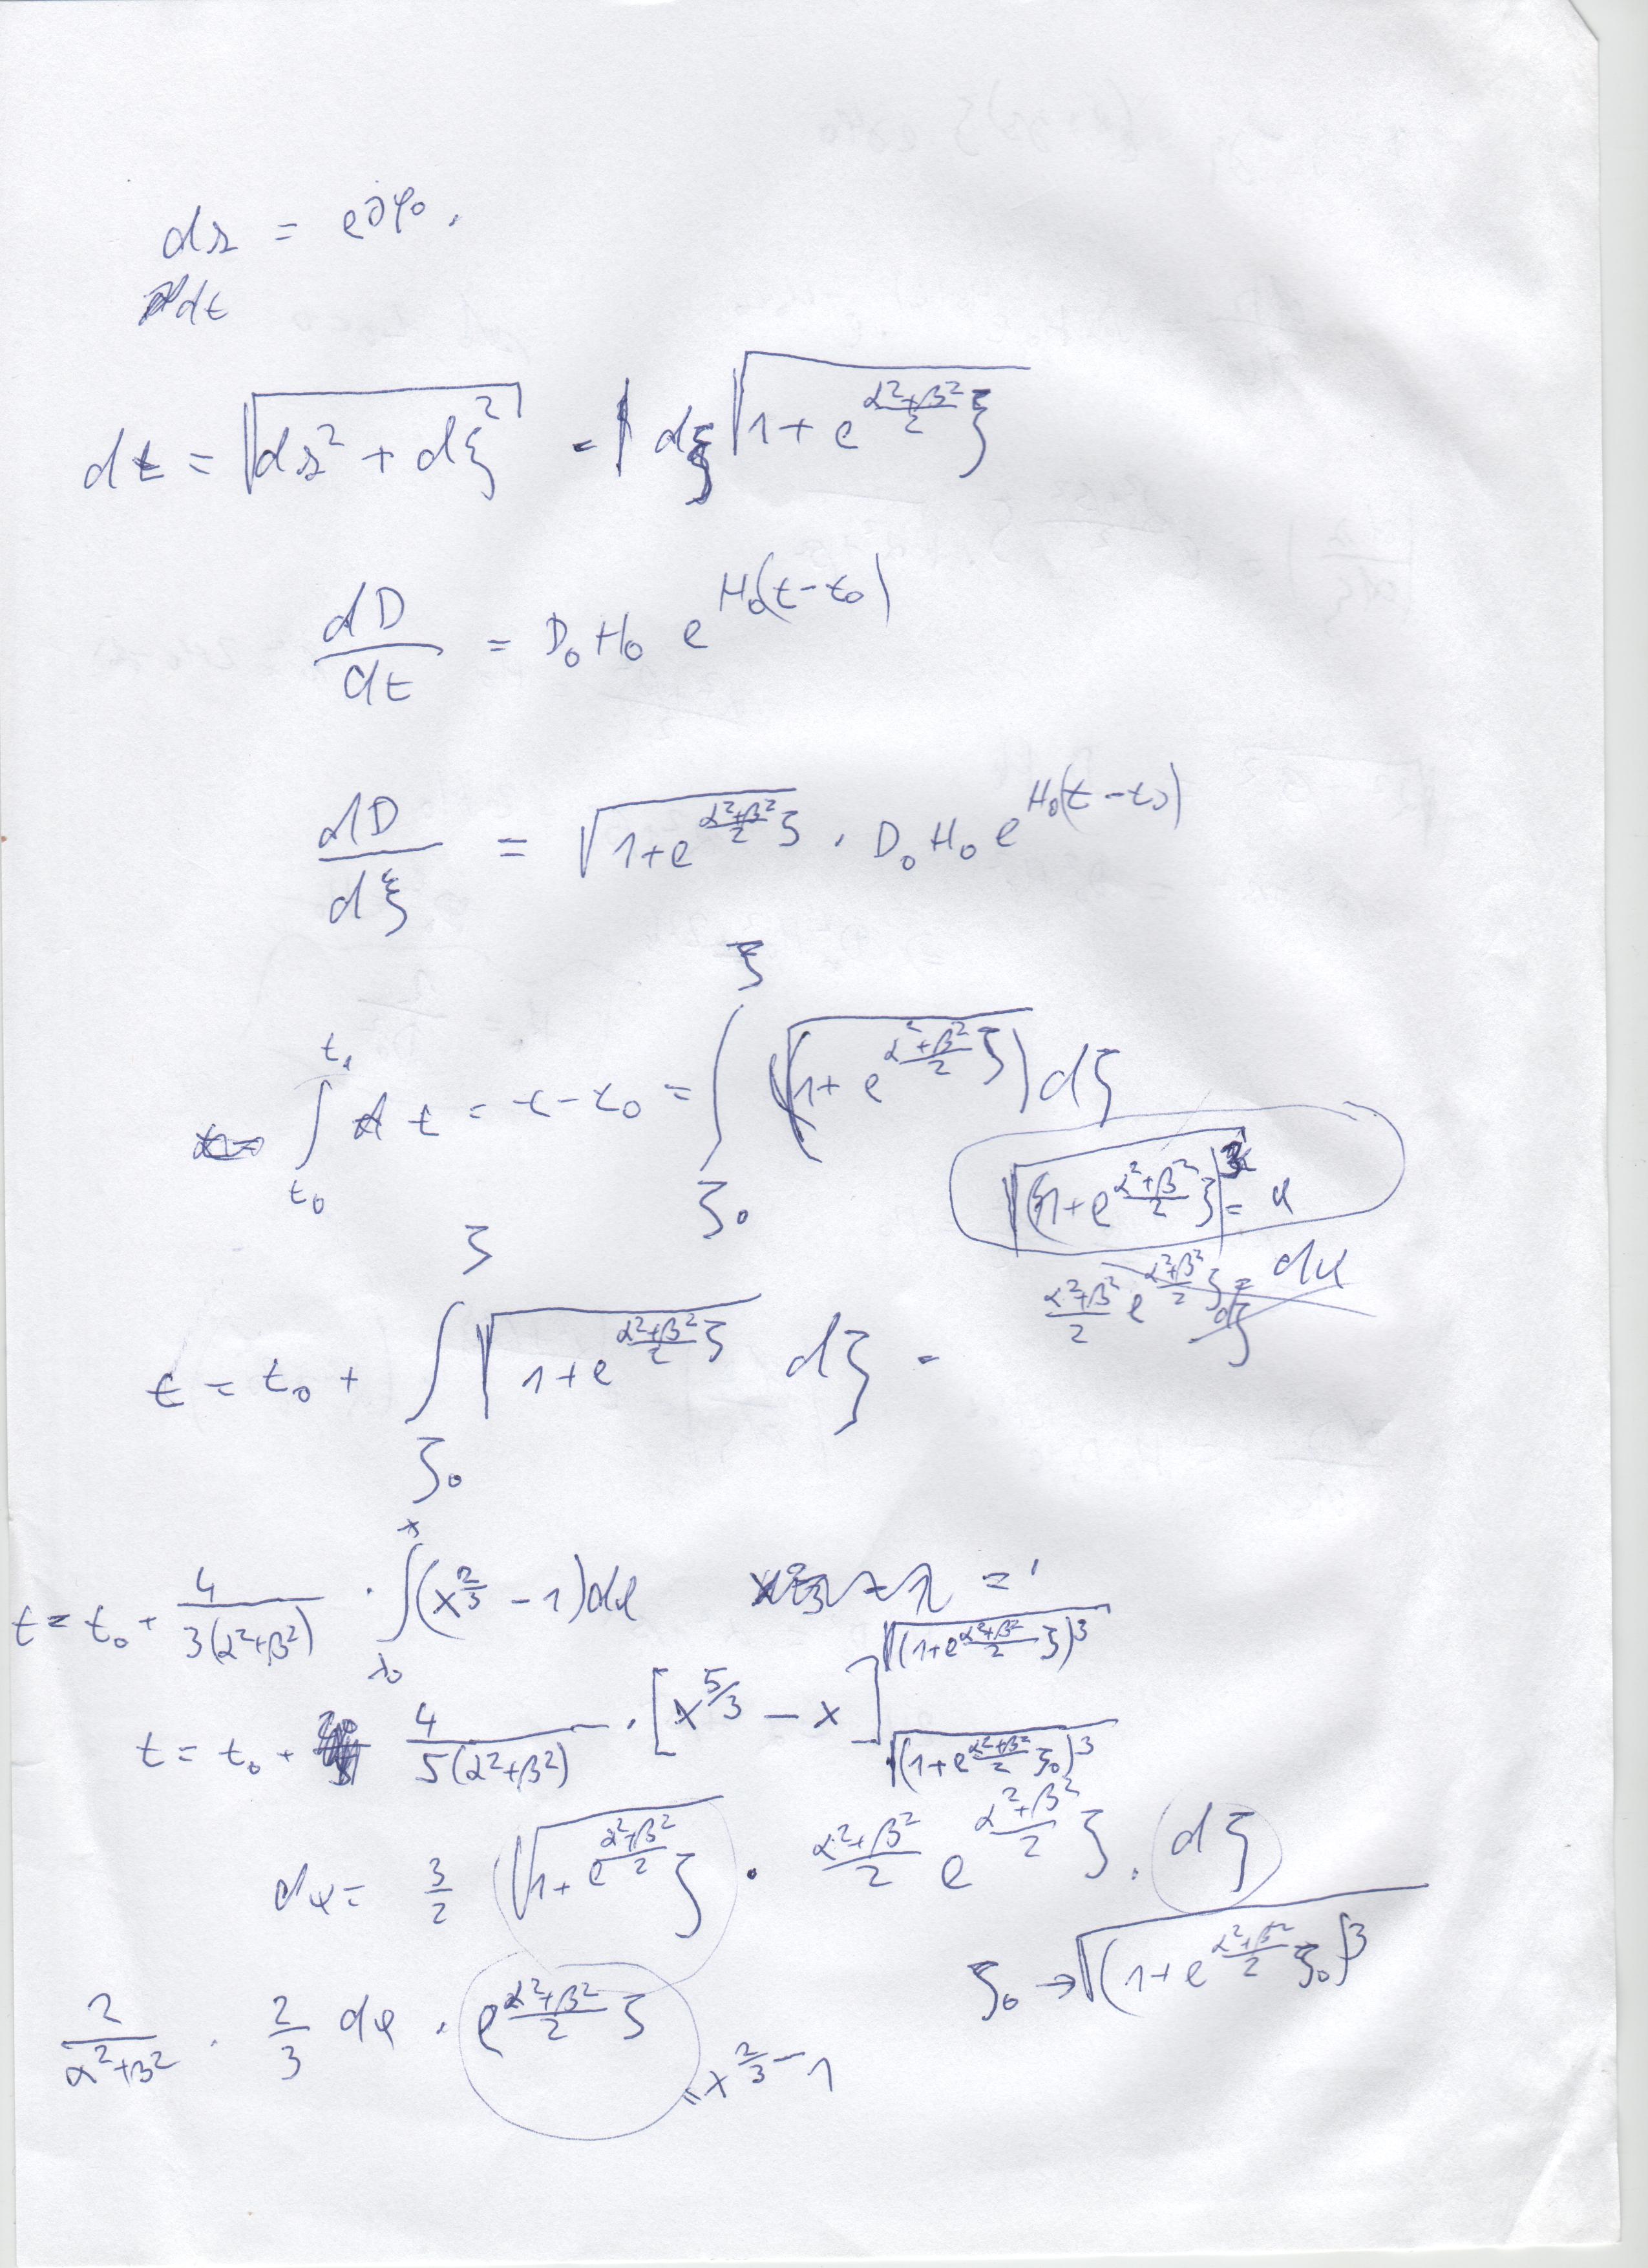 ds = e∂φ₀.
dt
dt = √(ds² + dξ²) = dξ √(1 + e^((α²+β²)/2 ξ))
dD/dt = D₀ H₀ e^(H₀(t-t₀))
dD/dξ = √(1+e^((α²+β²)/2 ξ)) · D₀ H₀ e^(H₀(t-t₀))
∫_(t₀)^(t₁) dt = t - t₀ = ∫_(ξ₀)^(ξ) (√(1+e^((α²+β²)/2 ξ))) dξ
√(1+e^((α²+β²)/2 ξ))³ = x
(α²+β²)/2 e^((α²+β²)/2 ξ) = dx/dξ
t = t₀ + ∫_(ξ₀)^(ξ) √(1+e^((α²+β²)/2 ξ)) dξ =
t = t₀ + 4/(3(α²+β²)) · ∫_(x₀)^(x) (x^(2/3) - 1) dx
t = t₀ + 4/(5(α²+β²)) · [x^(5/3) - x]_(√(1+e^((α²+β²)/2 ξ₀))³)^(√(1+e^((α²+β²)/2 ξ))³)
dx = 3/2 √(1+e^((α²+β²)/2 ξ)) · (α²+β²)/2 e^((α²+β²)/2 ξ) · dξ
ξ₀ → √(1+e^((α²+β²)/2 ξ₀))³
2/(α²+β²) · 2/3 dx · e^((α²+β²)/2 ξ)
= x^(2/3) - 1